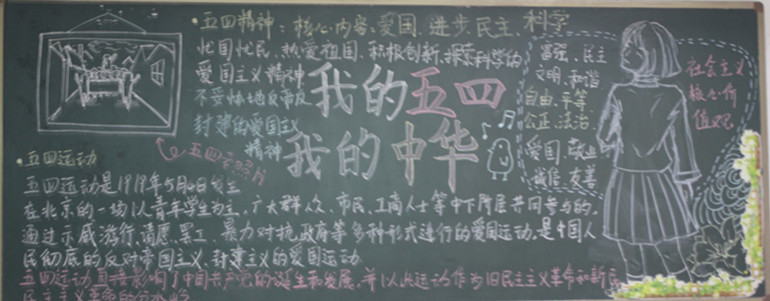 五四精神：核心内容：爱国、进步、民主、科学
忧国忧民、热爱祖国、积极创新、探索科学的
爱国主义精神
不妥协地反帝反
封建的爱国主义
精神
我的五四
我的中华
富强、民主
文明、和谐
自由、平等
公正、法治
爱国、敬业
诚信、友善
社会主义
核心价
值观
五四运动
五四运动是1919年5月4日发生
在北京的一场以青年学生为主，广大群众、市民、工商人士等中下阶层共同参与的，
通过示威游行、请愿、罢工、暴力对抗政府等多种形式进行的爱国运动。是中国人
民彻底的反对帝国主义、封建主义的爱国运动
五四运动直接影响了中国共产党的诞生和发展，并以此运动作为旧民主主义革命和新民
民主主义革命的分水岭